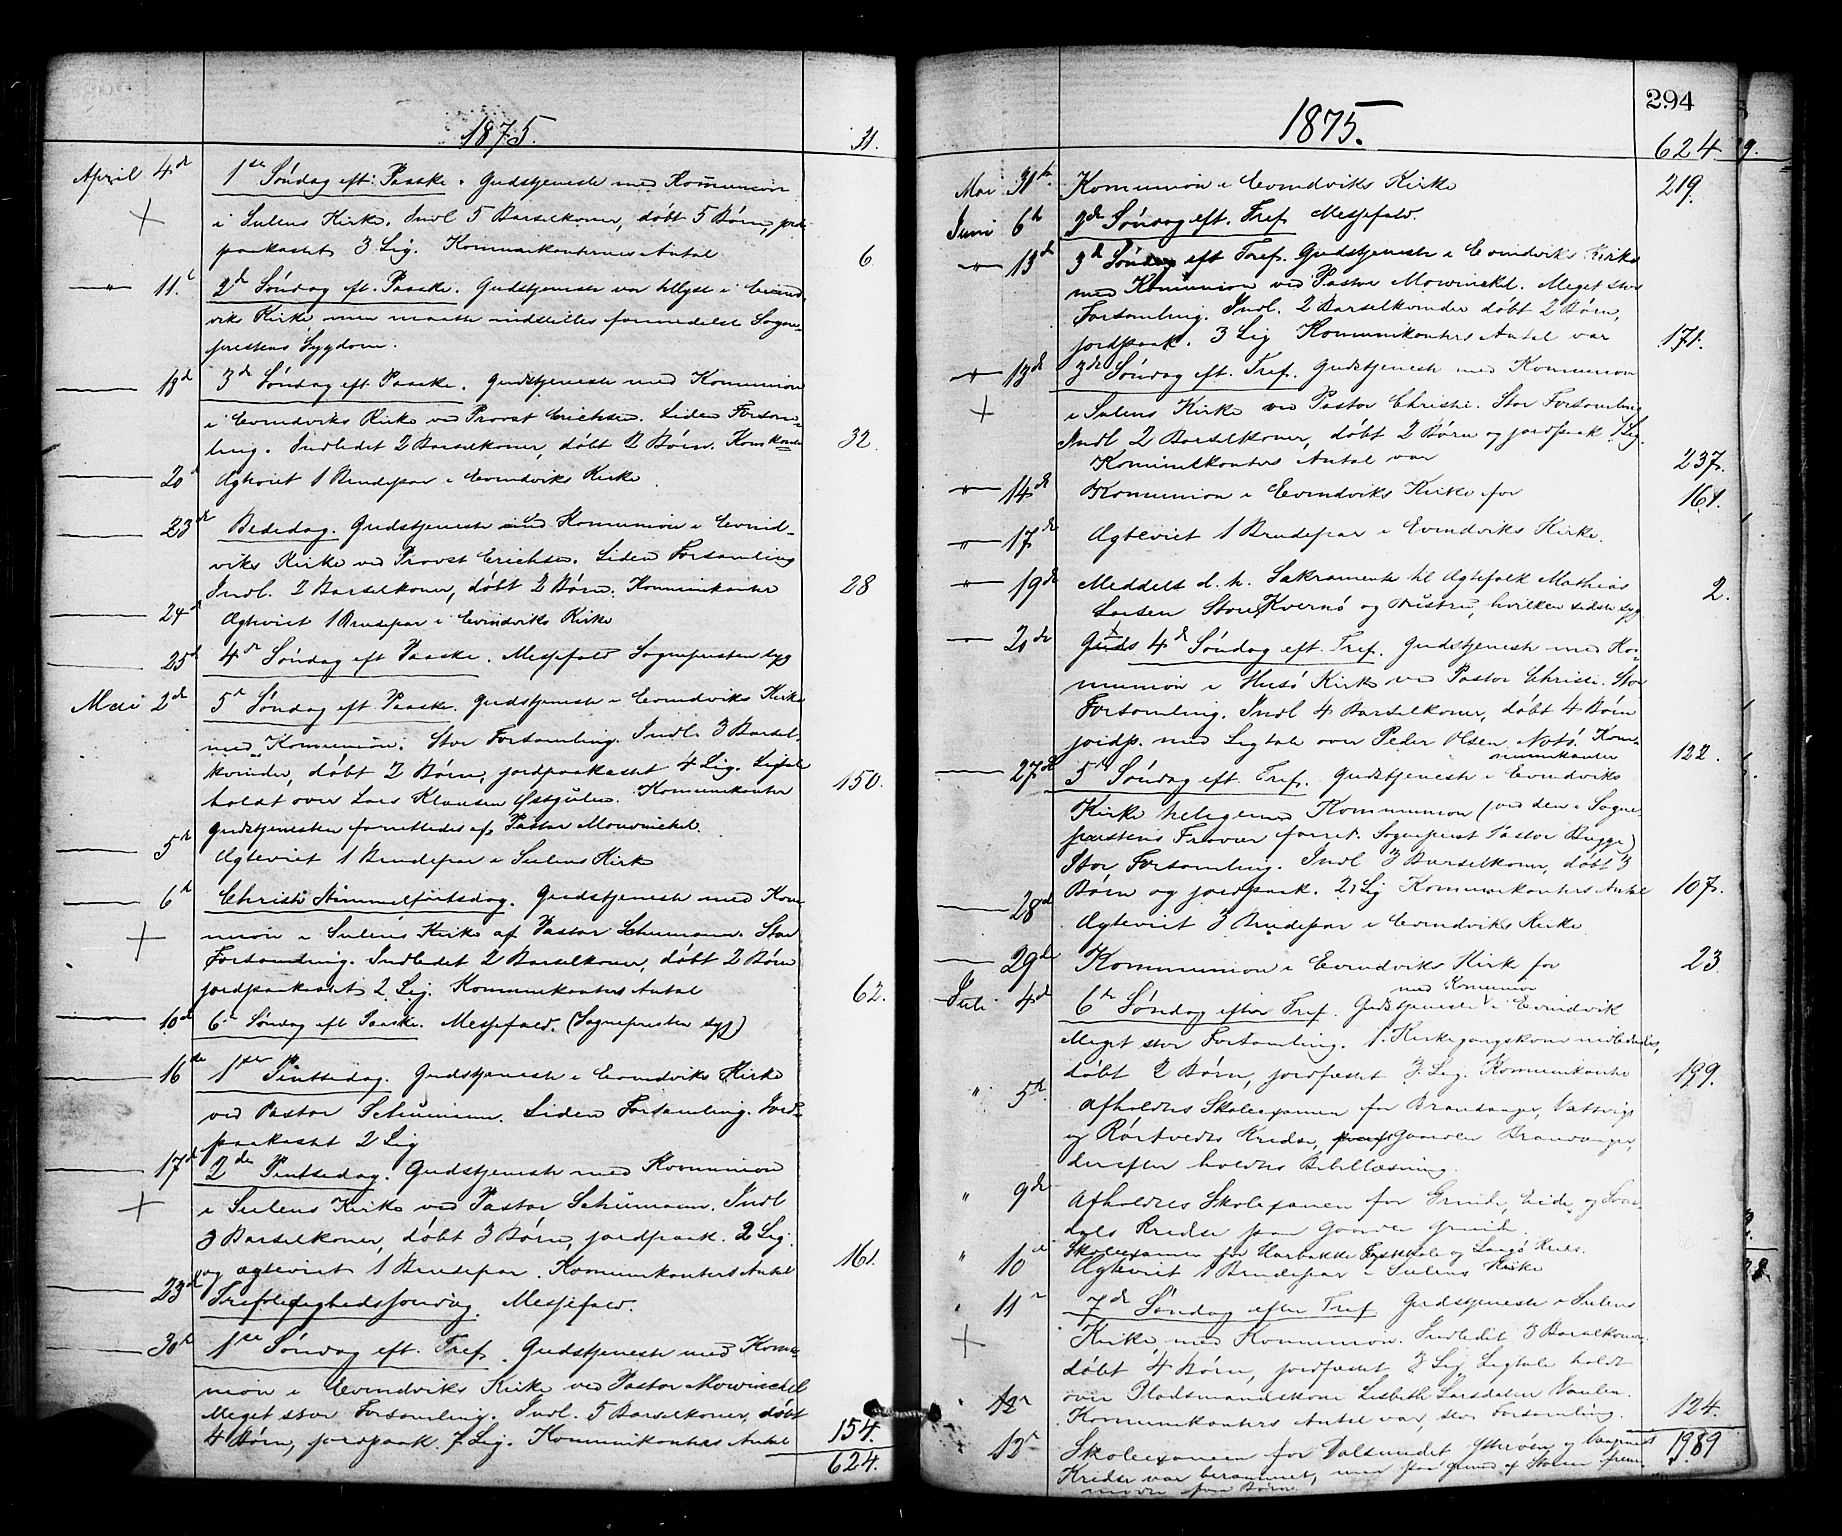 1875.
31.
April 4de 1ste Søndag eft: Paaske. Gudstjeneste med Kommunion
i Sulens Kirke. Indl 5 Barselkoner, døbt 5 Børn, jord-
paakastet 3 Lig. Kommunikanternes Antal 6
" 11te 2den Søndag eft. Paaske. Gudstjeneste var tillyst i Evind-
viks Kirke men maatte indstilles formedelst Sogne-
prestens Sygdom.
18de 3de Søndag eft Paaske. Gudstjeneste med Kommunion
i Evindviks Kirke ved Provst Erichsen. Liden Forsam-
ling. Indledet 2 Barselkoner, døbt 2 Børn. 32
20 Ægteviet 1 Brudepar i Evindviks Kirke.
23de Bededag. Gudstjeneste med Kommunion i Evind-
viks Kirke ved Provst Erichsen. Liden Forsamling
Indl. 2 Barselkoner, døbt 2 Børn. Kommunikanter 28
24de Ægteviet 1 Brudepar i Evindviks Kirke
25de 4de Søndag eft Paaske. Messefald Sognepresten syg
Mai 2de 5te Søndag eft Paaske. Gudstjeneste i Evindviks Kirke
med Kommunion. Stor Forsamling. Indl. 3 Barsel-
kvinder, døbt 2 Børn, jordpaakastet 4 Lig. Ligtale
holdt over Lars Klausen Østgulen. Kommunikanter 150.
Gudstjenesten forrettedes af Pastor Mowinckel.
5te Ægteviet 1 Brudepar i Sulens Kirke
6te Christi Himmelfartsdag. Gudstjeneste med Kom-
munion i Sulens Kirke af Pastor Schumann. Stor
Forsamling. Indledet 2 Barselkoner, døbt 2 Børn
jordpaakastet 2 Lig. Kommunikanters Antal 62.
10de 6te Søndag eft Paaske. Messefald. (Sognepresten syg)
16de 1ste Pintsedag. Gudstjeneste i Evindviks Kirke
ved Pastor Schumann. Liden Forsamling. Jord-
paakastet 2 Lig
17de 2den Pintsedag. Gudstjeneste med Kommunion
i Sulens Kirke ved Pastor Schumann. Indl
3 Barselkoner, døbt 3 Børn, jordpaak. 2 Lig.
og ægteviet 1 Brudepar. Kommunikanters Antal 161.
23de Trefoldighedssøndag. Messefald.
30te 1ste Søndag eft. Tref. Gudstjeneste med Kom-
munion i Evindviks Kirke ved Pastor Mowinckel
Meget stor Forsamling. Indl. 5 Barselkoner, døbt
4 Børn, jordpaak. 7 Lig. Kommunikanters Antal 154.
624.
294
1875.
624.
Mai 31te Kommunion i Evindviks Kirke 219.
Juni 6te 2den Søndag eft. Tref. Messefald.
" 13de 3de Søndag eft Tref. Gudstjeneste i Evindviks Kirke
med Kommunion ved Pastor Mowinckel. Meget stor
Forsamling. Indl. 2 Barselkvinder døbt 2 Børn,
jordpaak. 3 Lig Kommunikanters Antal var 171.
" 13de 3de Søndag eft. Tref. Gudstjeneste med Kommunion
i Sulens Kirke ved Pastor Christie. Stor Forsamling
Indl 2 Barselkoner, døbt 2 Børn og jordpaak 1 Lig.
Kommunikanters Antal var 237.
" 14de Kommunion i Evindviks Kirke for 161.
" 17de Ægteviet 1 Brudepar i Evindviks Kirke.
" 19de Meddelt d. h. Sakramente til Ægtefolk Mathias
Larsen Store Kvernø og Hustru, hvilken sidste syg 2.
" 20de Guds 4de Søndag eft. Tref. Gudstjeneste med Kom-
munion i Husø Kirke ved Pastor Christie. Stor
Forsamling. Indl 4 Barselkoner, døbt 4 Børn
jordp. med Ligtale over Peder Olsen Notø. Kom-
munikanter 122.
27de 5te Søndag eft. Tref. Gudstjeneste i Evindviks
Kirke Kommunion (ved den i Sogne-
prestens Fravær forret. Sogneprest Pastor Brygge)
Stor Forsamling. Indl 3 Barselkoner, døbt 3
Børn og jordpaak. 2 Lig Kommunikanters Antal 107.
28de Ægteviet 3 Brudepar i Evindviks Kirke
29de Kommunion i Evindviks Kirke for 23
med Komunion
Juli 4de 6te Søndag efter Tref. Gudstjeneste i Evindvik
Meget stor Forsamling. 1 Kirkegangskone indlededes,
døbt 2 Børn, jordfæstet 3 Lig. Kommunikanter 199.
" 5te Afholdtes Skoleexamen for Brandanger,
og Rørtvedts Kredse, Gaarden Brandanger,
derefter holdtes Bibellæsning.
" 9de Afholdtes Skoleexamen for Grinde, Eide og
Kredse paa Gaarden Grinde.
" 10de Skoleexamen for Harbakke og Kreds.
Ægteviet 1 Brudepar i Sulens Kirke
" 11te 7de Søndag efter Tref Gudstjeneste i Sulens
Kirke, med Kommunion. Indledet 3 Barselkoner
døbt 4 Børn, jordfæstet 3 Lig Ligtale holdt
over Pladsmandskone Lisbeth Larsdatter
12te Kommunikanters Antal var, stor Forsamling. 124.
1989
12te Skoleexamen for Dalsundet og
Kredse var berammet, men paa Grund af Storm frem-
mødte faa Børn